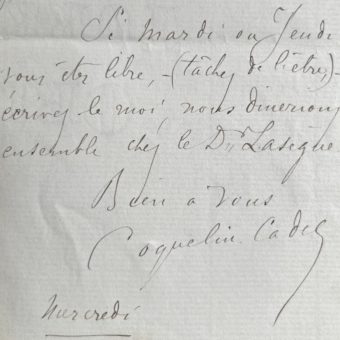 Si mardi ou Jeudi
vous êtes libre, - (tâchez de l'être,) -
écrivez le moi, nous dinerions
ensemble chez le Dr. Lasègue
Bien a vous
Coquelin Cadet
Mercredi